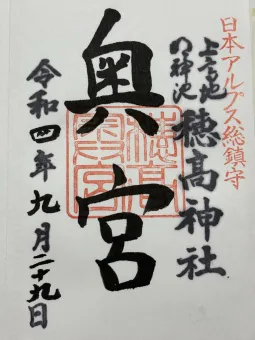 日本アルプス総鎮守
上高地
の神池
穂高神社
奥宮
穂高
奥宮
令和四年九月二十九日